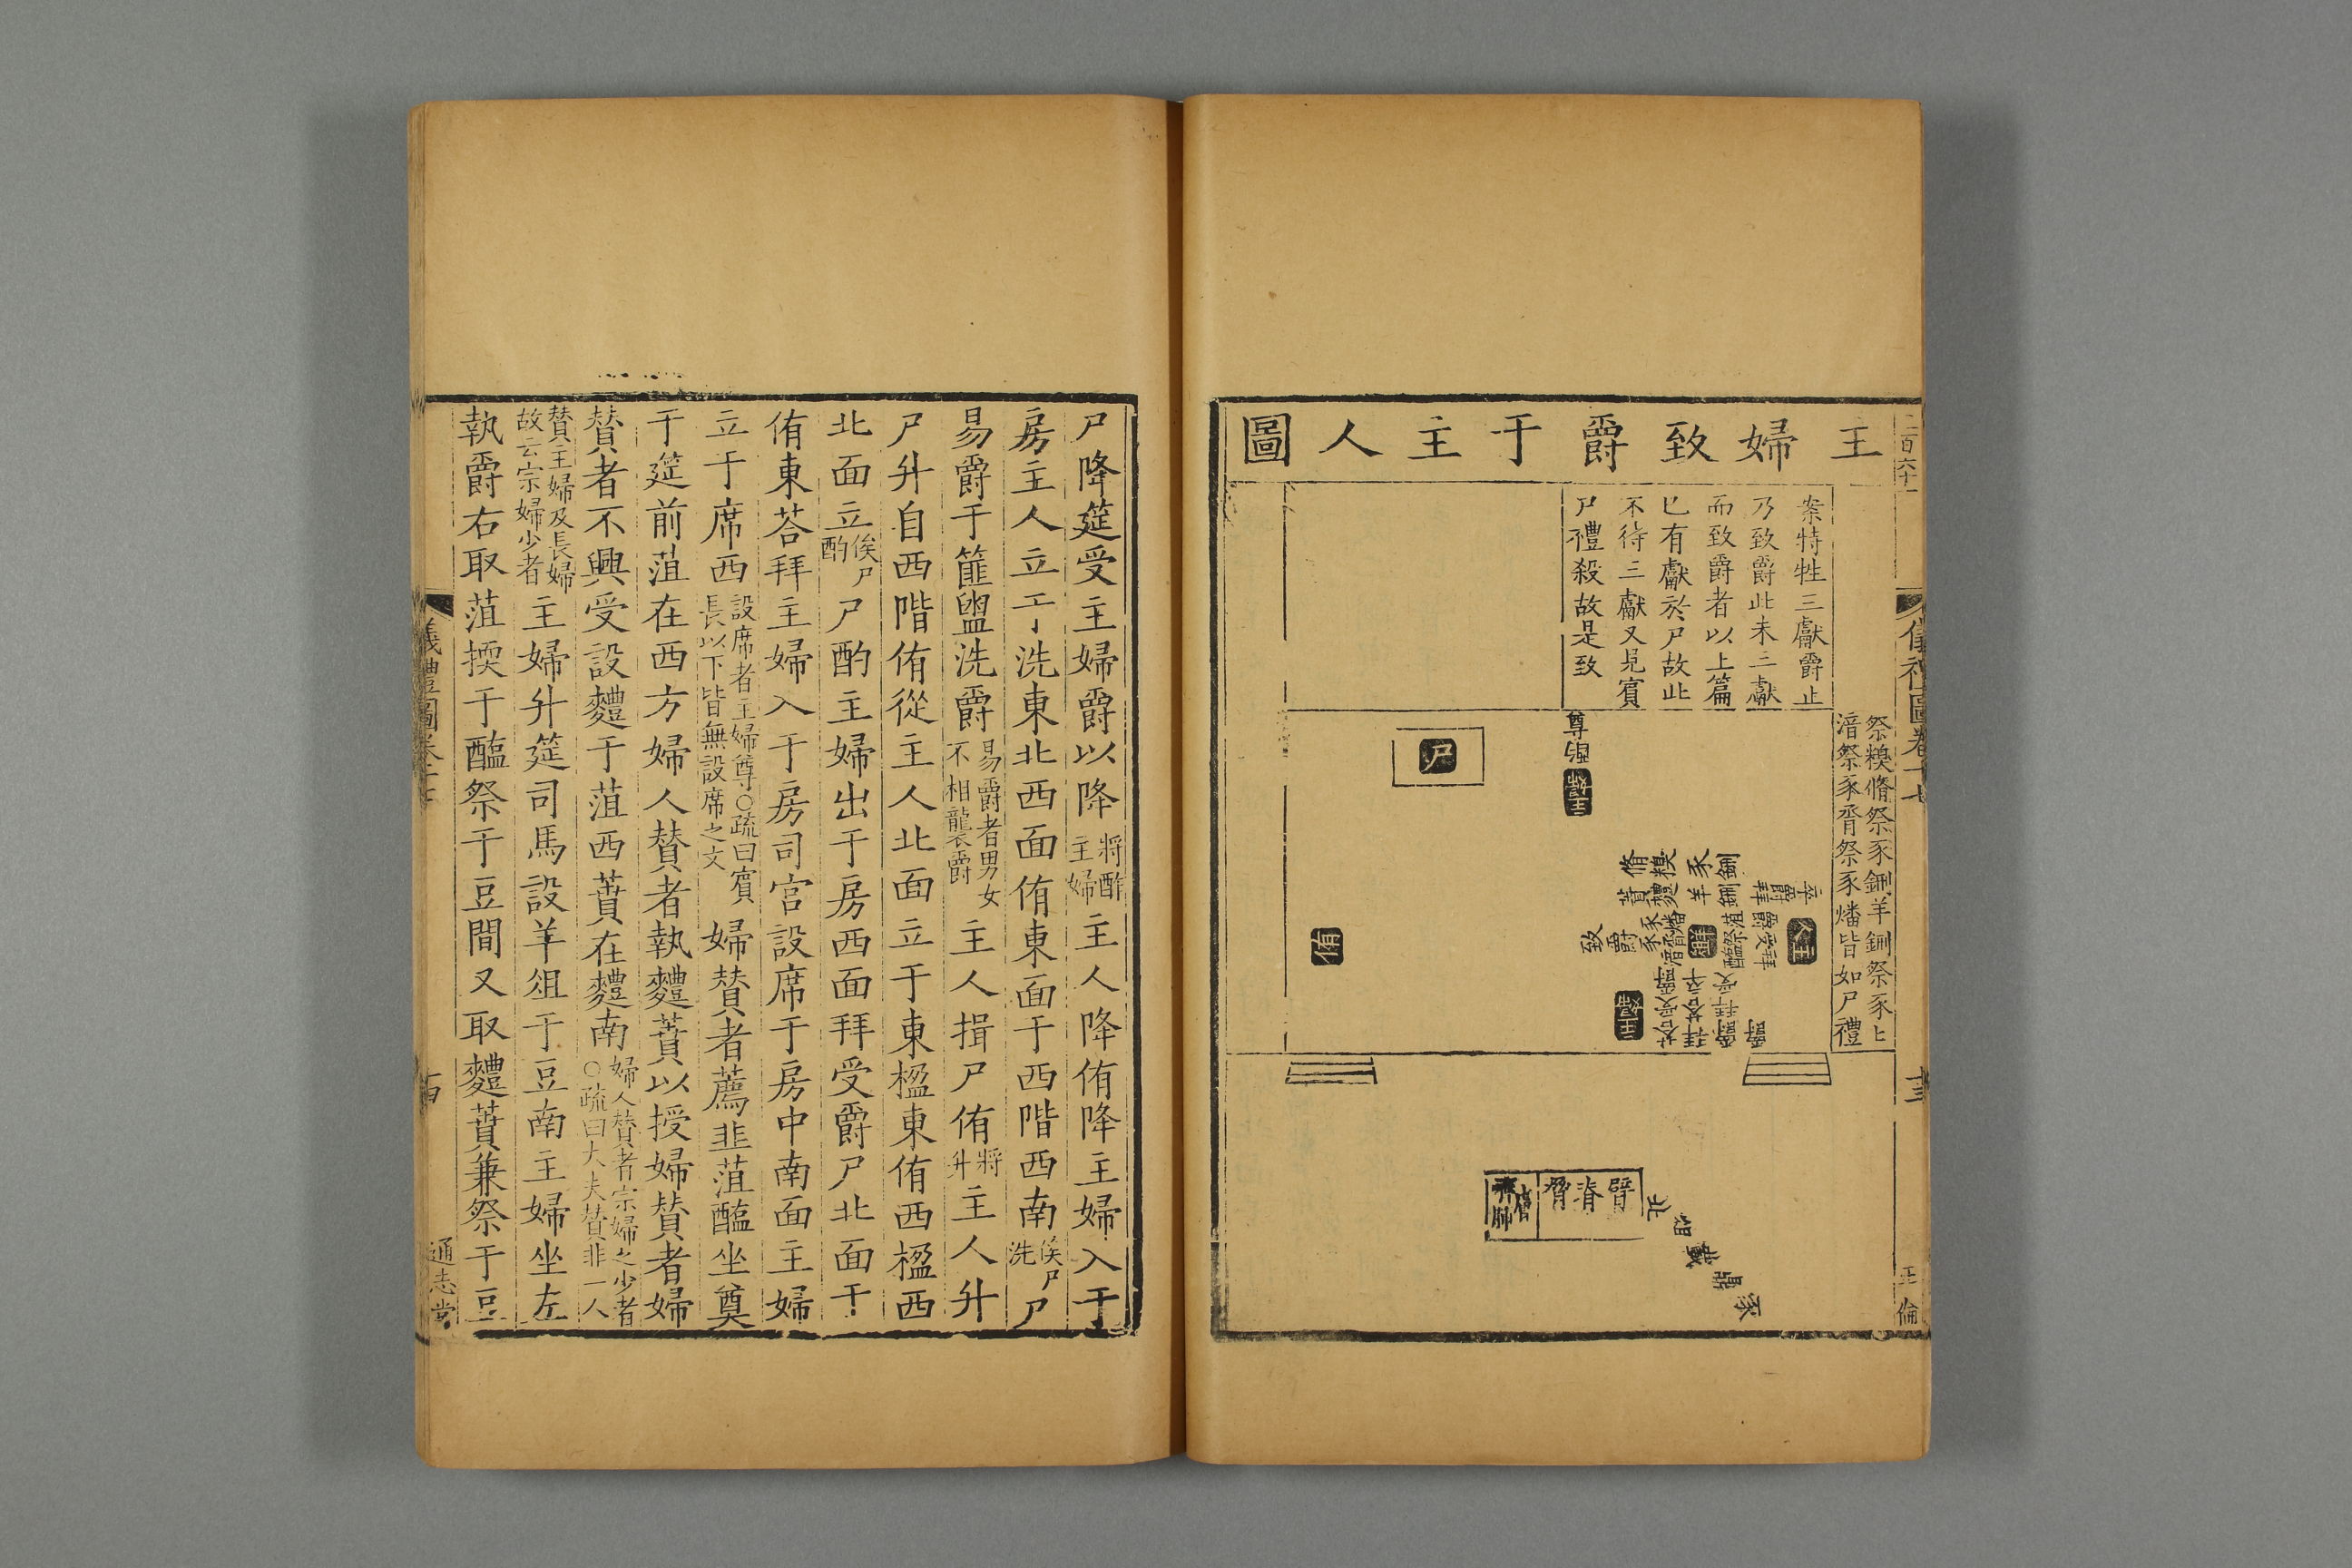 主婦致爵于主人圖
二百六十一
儀禮圖卷十七
十三
王倫
案特牲三獻爵止
乃致爵此未三獻
而致爵者以上篇
已有獻於尸故此
不待三獻又見賓
尸禮殺故是致
祭糗脩祭豕鉶羊鉶祭豕匕
湆祭豕脀祭豕燔皆如尸禮
尊
尸
主婦
侑
主人
致爵
主婦
臂脊脅
北
俎
鼎
豕
尸降筵受主婦爵以降將酢主婦主人降侑降主婦入于
房主人立于洗東北西面侑東面于西階西南俟尸洗尸
易爵于篚盥洗爵易爵者男女不相襲爵主人揖尸侑將升主人升
尸升自西階侑從主人北面立于東楹東侑西楹西
北面立俟尸酌尸酌主婦出于房西面拜受爵尸北面于
侑東荅拜主婦入于房司宮設席于房中南面主婦
立于席西設席者主婦尊○疏曰賓長以下皆無設席之文婦贊者薦韭菹醢坐奠
于筵前菹在西方婦人贊者執麷蕡以授婦贊者婦
贊者不興受設麷于菹西蕡在麷南婦人贊者宗婦之少者○疏曰大夫贊非一人
贊主婦及長婦故云宗婦少者主婦升筵司馬設羊俎于豆南主婦坐左
執爵右取菹擩于醢祭于豆間又取麷蕡兼祭于豆
儀禮圖卷十七
十四
通志堂